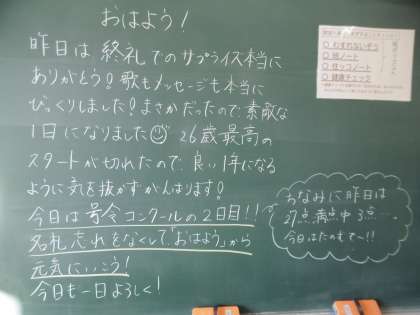 おはよう!
昨日は終礼でのサプライズ本当に
ありがとう!歌もメッセージも本当に
びっくりしました!まさかだったので素敵な
1日になりました 26歳最高の
スタートが切れたので、良い1年になる
ように気を抜かずがんばります!
今日は号令コンクールの2日目!!
名札忘れをなくして「おはよう」から
元気にいこう!
今日も一日よろしく!
ちなみに昨日は
点満点中3点…。
今日はたのむで〜!!
わすれないぞう
健康チェック